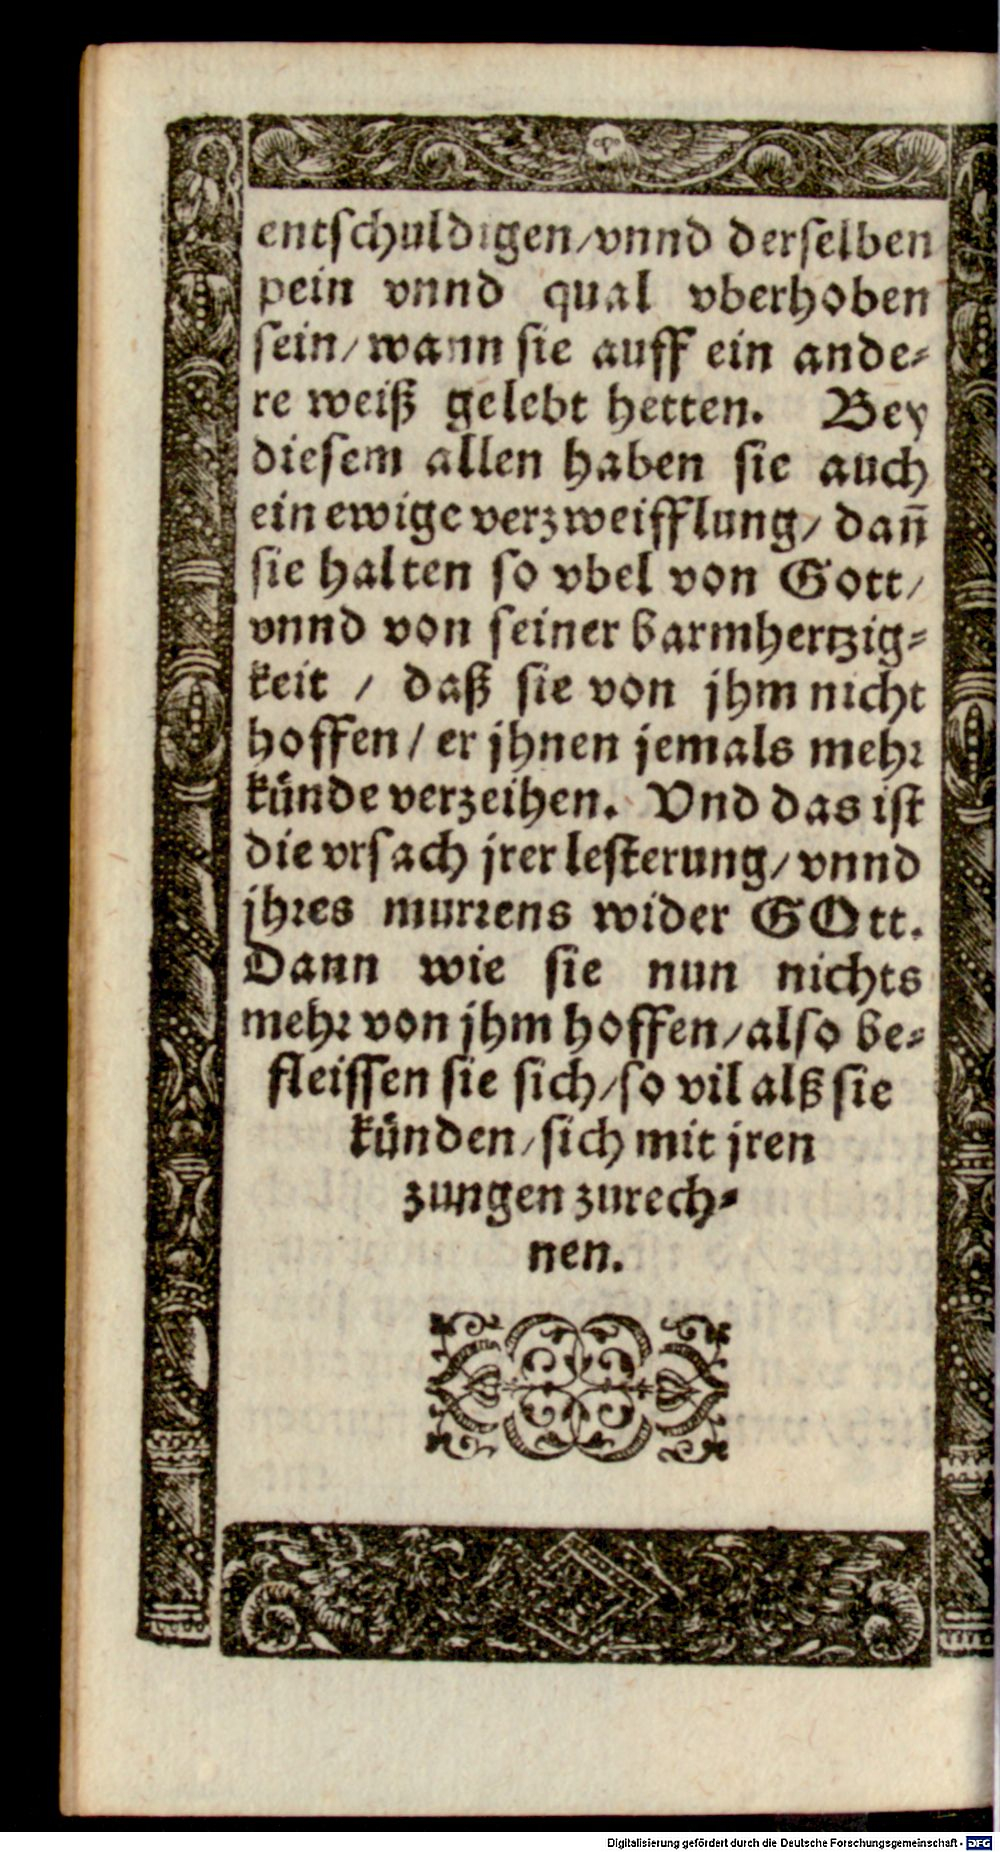 entschuldigen/vnnd derselben
pein vnnd qual vberhoben
sein/wann sie auff ein ande-
re weiß gelebt hetten. Bey
diesem allen haben sie auch
ein ewige verzweifflung/dañ
sie halten so vbel von Gott/
vnnd von seiner barmhertzig-
keit / daß sie von jhm nicht
hoffen/er jhnen jemals mehr
künde verzeihen. Vnd das ist
die vrsach jrer lesterung/vnnd
jhres murrens wider GOtt.
Dann wie sie nun nichts
mehr von jhm hoffen/also be-
fleissen sie sich/so vil alß sie
künden/sich mit jren
zungen zurech-
nen.
Digitalisierung gefördert durch die Deutsche Forschungsgemeinschaft - DFG